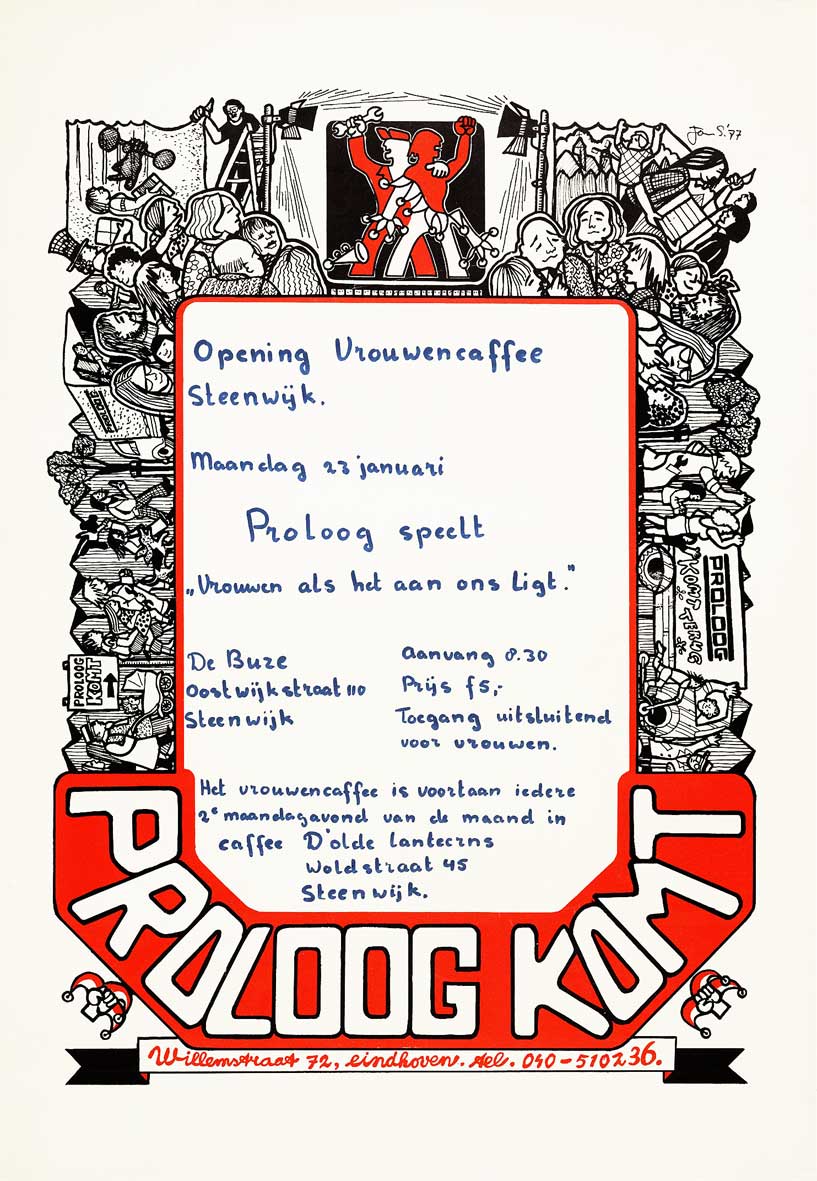 Jan S. '77
Opening Vrouwencaffee
Steenwijk.
Maandag 23 januari
Proloog speelt
„Vrouwen als het aan ons ligt."
De Buze
Oostwijkstraat 110
Steenwijk
Aanvang 8.30
Prijs f5,-
Toegang uitsluitend
voor vrouwen.
Het vrouwencaffee is voortaan iedere
2e maandagavond van de maand in
caffee D'olde Lanteerns
Woldstraat 45
Steenwijk.
PROLOOG
KOMT
PROLOOG
KOMT TERUG
PROLOOG KOMT
Willemstraat 72, eindhoven. tel. 040-510236.